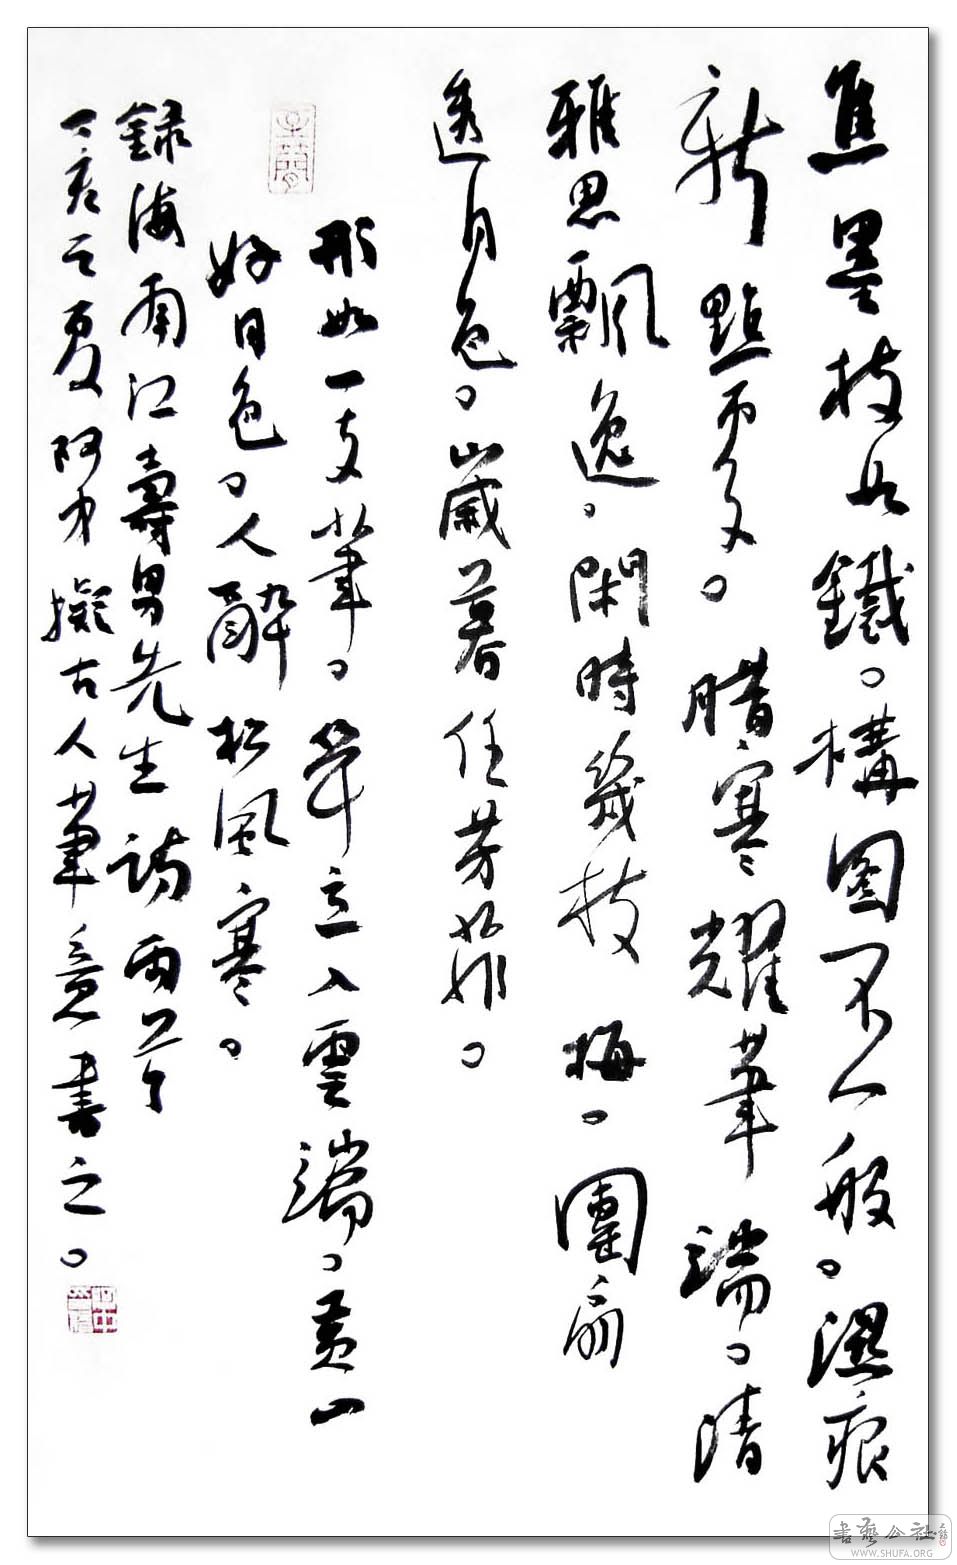 焦墨枝如鐵。構圖不一般。濕痕
新點更多。臘寒耀筆端。清
雅思飄逸。閑時幾枝梅。團扇
透月色。歲暮任芳菲。
形如一支筆。聳立入雲端。黃山
好月色。人醉松風寒。
錄海南江壽男先生詩兩首
丁亥之夏阿才擬古人筆意書之。
書藝公社
WWW.SHUFA.ORG